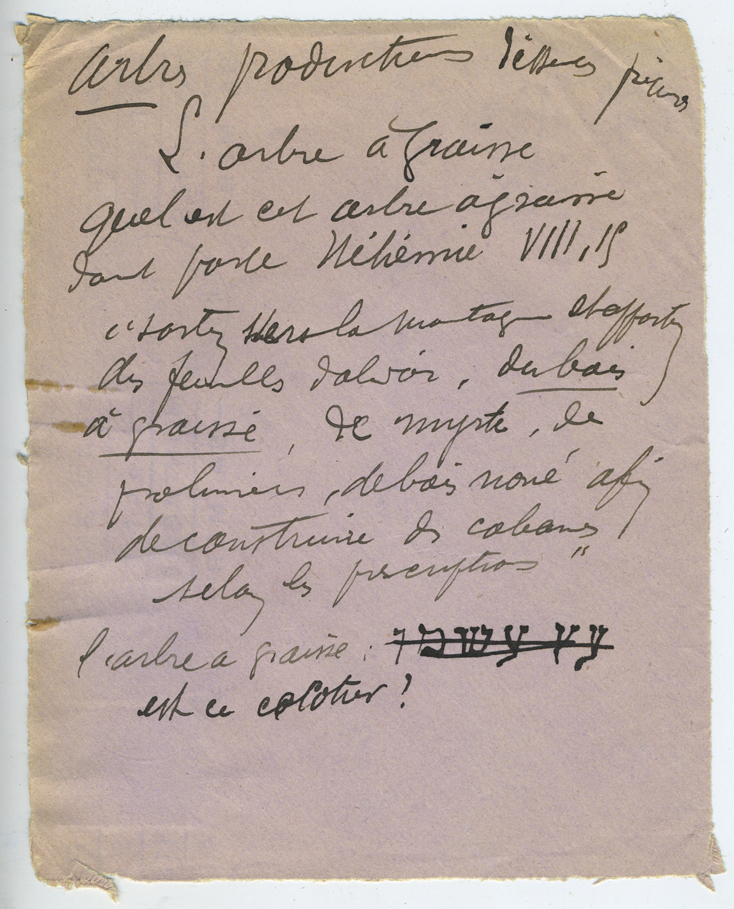 Arbres producteurs d'essences
L'arbre à graisse
Quel est cet arbre à graisse
dont parle Néhémie VIII, 15
"sortez vers la montagne et apportez
des feuilles d'olivier, du bois
à graisse, de myrte, de
palmiers, de bois noué afin
de construire des cabanes
selon les prescriptions"
l'arbre a graisse :
est ce